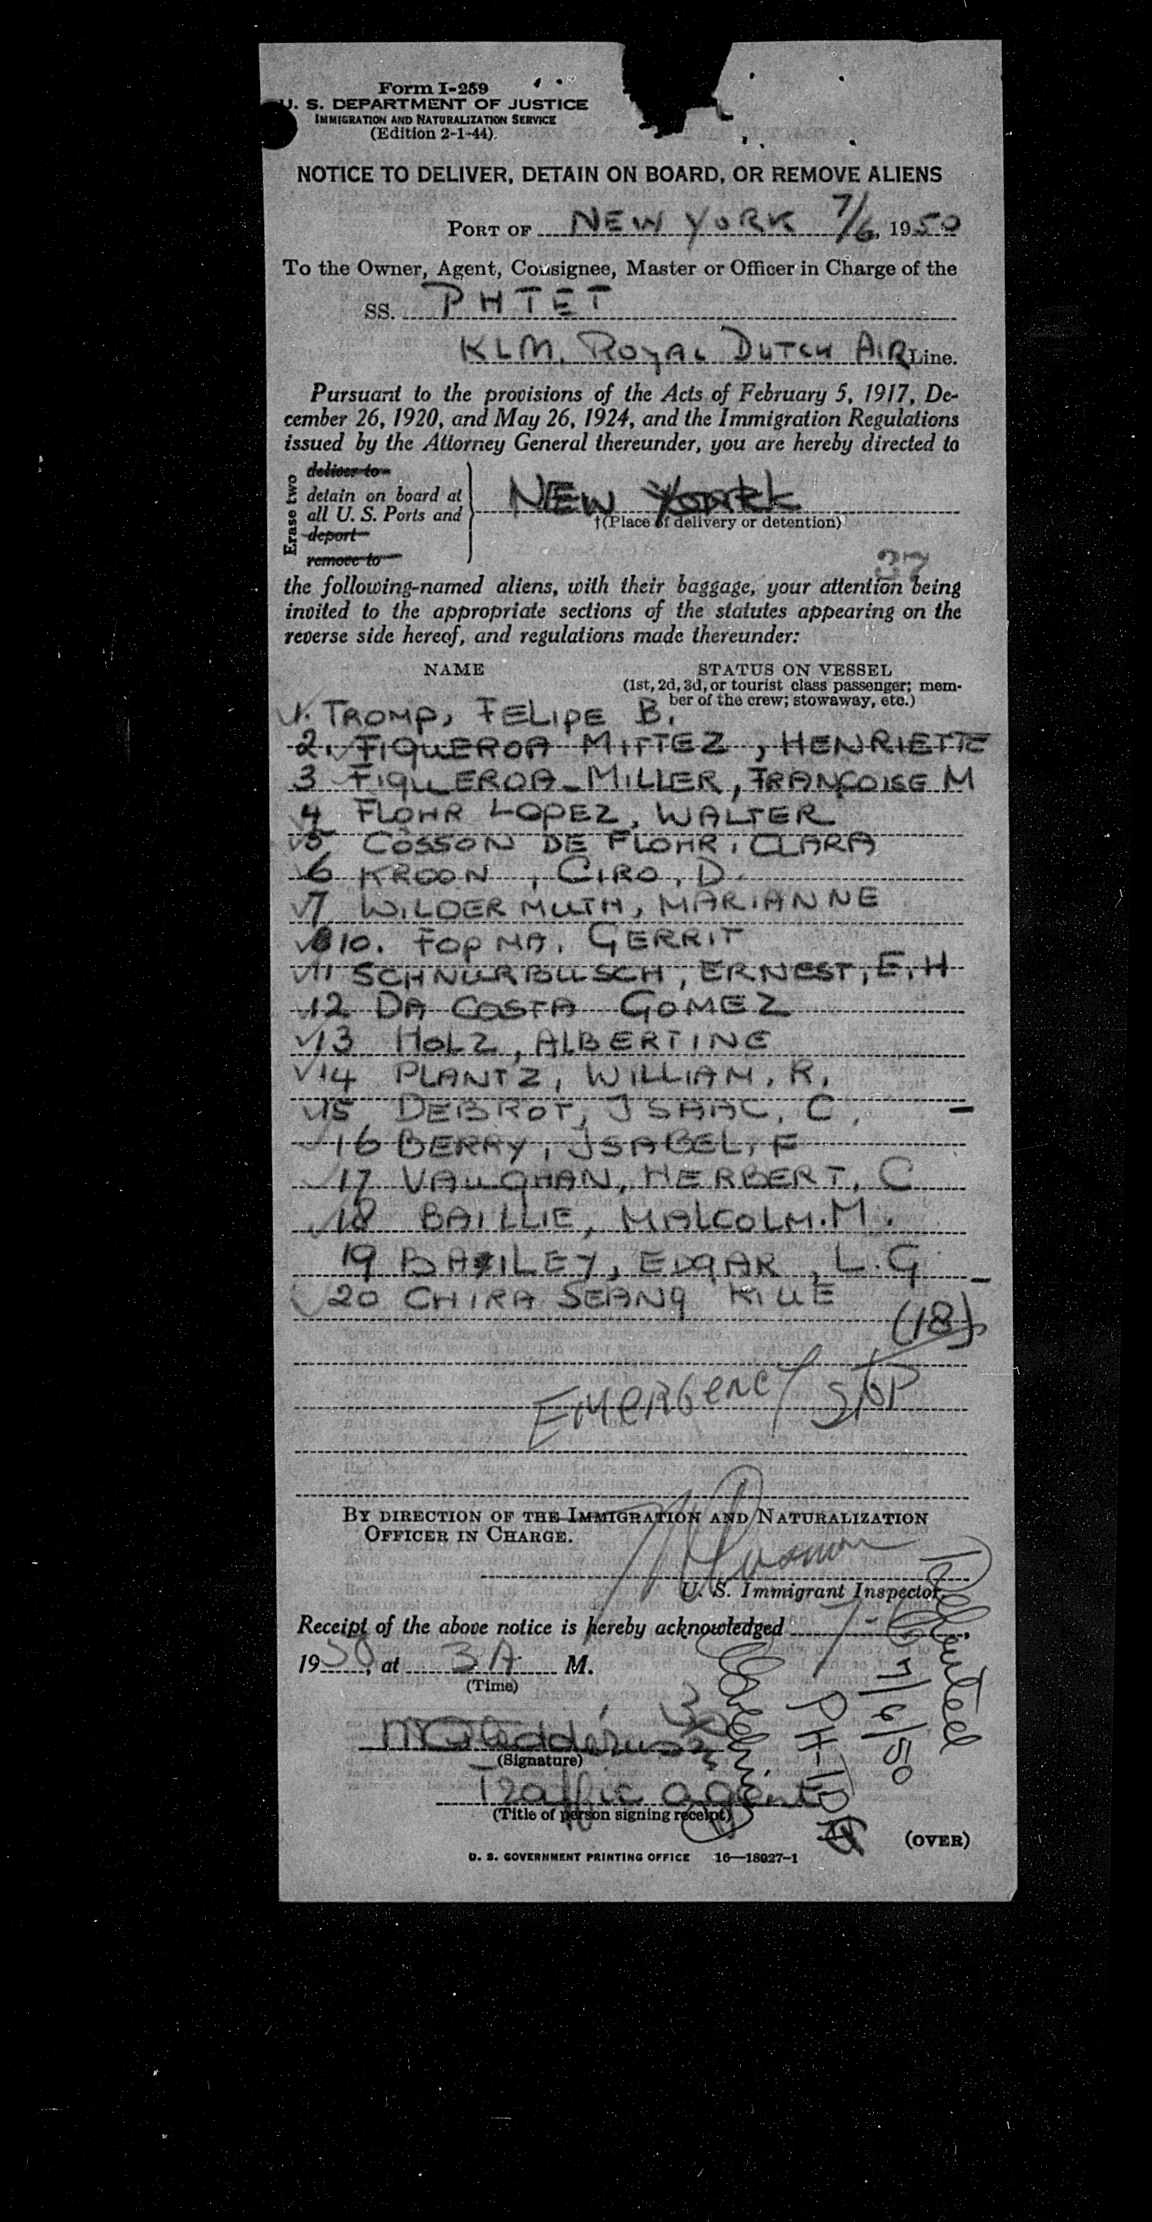 Form I-259
U. S. DEPARTMENT OF JUSTICE
IMMIGRATION AND NATURALIZATION SERVICE
(Edition 2-1-44)
NOTICE TO DELIVER, DETAIN ON BOARD, OR REMOVE ALIENS
PORT OF NEW YORK 7/6, 1950
To the Owner, Agent, Consignee, Master or Officer in Charge of the
SS. PHTET
KLM. ROYAL DUTCH AIR Line.
Pursuant to the provisions of the Acts of February 5, 1917, De-
cember 26, 1920, and May 26, 1924, and the Immigration Regulations
issued by the Attorney General thereunder, you are hereby directed to
Erase two
deliver to
detain on board at
all U. S. Ports and
deport
remove to
NEW YORK
†(Place of delivery or detention)
37
the following-named aliens, with their baggage, your attention being
invited to the appropriate sections of the statutes appearing on the
reverse side hereof, and regulations made thereunder:
NAME STATUS ON VESSEL
(1st, 2d, 3d, or tourist class passenger; mem-
ber of the crew; stowaway, etc.)
1. TROMP, FELIPE B.
2. FIQUEROA MITTEZ, HENRIETTE
3 FIQUEROA-MILLER, FRANÇOISE M
4 FLOHR LOPEZ, WALTER
5 COSSON DE FLOHR, CLARA
6 KROON, CIRO, D.
7 WILDERMUTH, MARIANNE
10. FOPMA, GERRIT
11 SCHNURBUSCH, ERNEST, E, H
12 DA COSTA GOMEZ
13 HOLZ, ALBERTINE
14 PLANTZ, WILLIAM, R,
15 DEBROT, ISAAC, C, -
16 BERRY, ISABEL, F
17 VAUGHAN, HERBERT, C
18 BAILLIE, MALCOLM. M.
19 BAILEY, EDGAR, L. G -
20 CHIRA SEANG KIUE
(18)
EMERGENCY STOP
BY DIRECTION OF THE IMMIGRATION AND NATURALIZATION
OFFICER IN CHARGE.
U. S. Immigrant Inspector.
Receipt of the above notice is hereby acknowledged 7-6,
1950, at 3 A M.
(Time)
(Signature)
Traffic agent
(Title of person signing receipt)
7/6/50
(OVER)
U. S. GOVERNMENT PRINTING OFFICE 16—18027-1